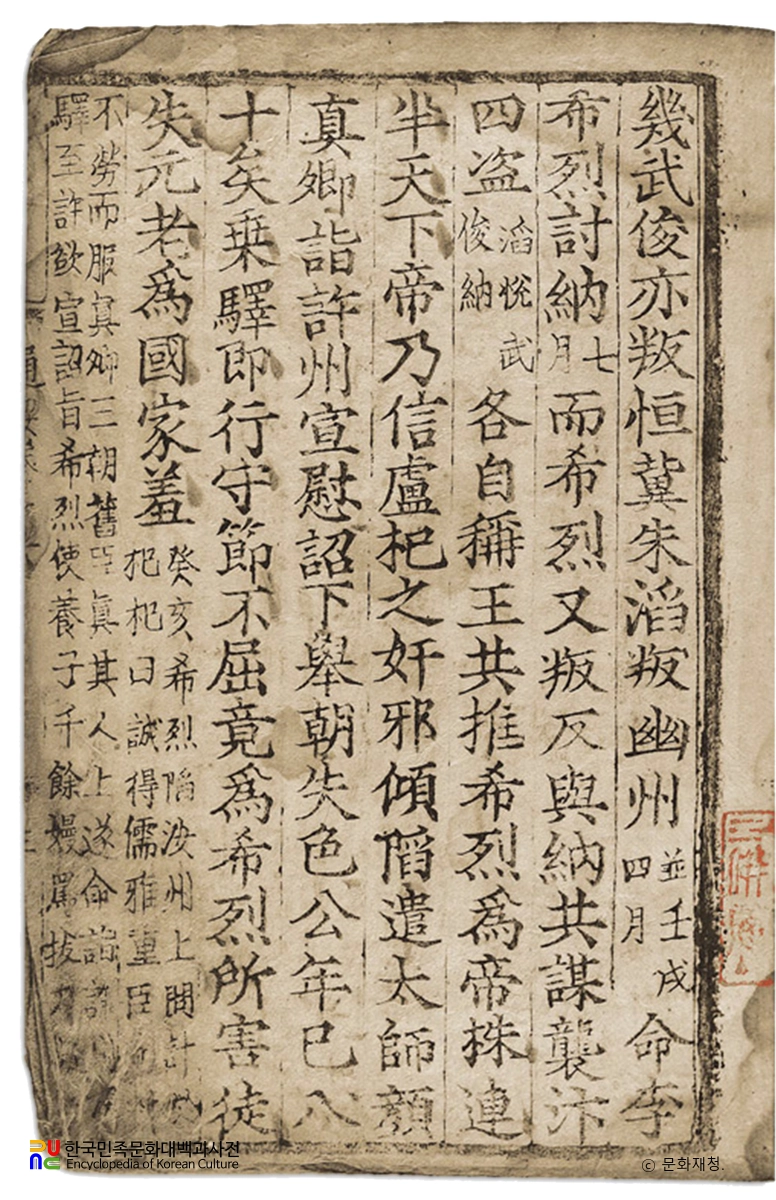 幾武俊亦叛恒冀朱滔叛幽州並壬戌四月命李
希烈討納七月而希烈又叛反與納共謀襲汴
四盗滔悅武俊納各自稱王共推希烈爲帝株連
半天下帝乃信盧杞之奸邪傾陷遣太師顔
真卿詣許州宣慰詔下舉朝失色公年已八
十矣乗驛即行守節不屈竟爲希烈所害徒
失元老爲國家羞癸亥希烈陷汝州上問計於杞杞曰誠得儒雅重臣
不勞而服眞卿三朝舊臣眞其人上遂命詣許
驛至許欲宣詔旨希烈使養子千餘嫚罵拔刃
한국민족문화대백과사전
Encyclopedia of Korean Culture
ⓒ 문화재청.